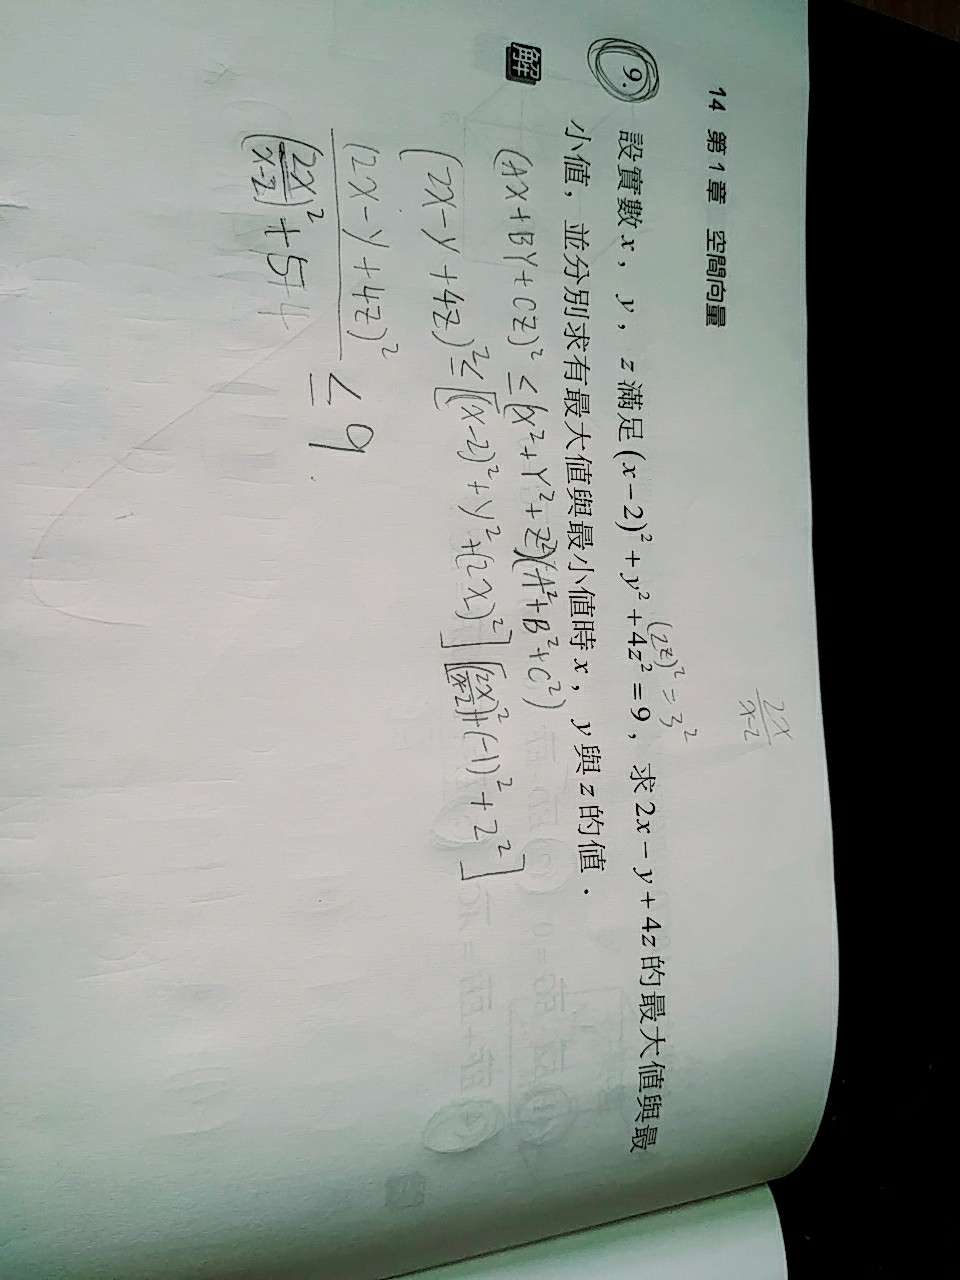 14 第1章 空間向量
2x/x-2
(2z)²=3²
9. 設實數x，y，z滿足(x-2)²+y²+4z²=9，求2x-y+4z的最大值與最
小值，並分別求有最大值與最小值時x，y與z的值．
解
(AX+BY+CZ)²≤(X²+Y²+Z²)(A²+B²+C²)
(2x-y+4z)²≤[(x-2)²+y²+(2x)²][(2x/x-2)²+(-1)²+2²]
(2x-y+4z)²/(2x/x-2)²+5+4 ≤ 9